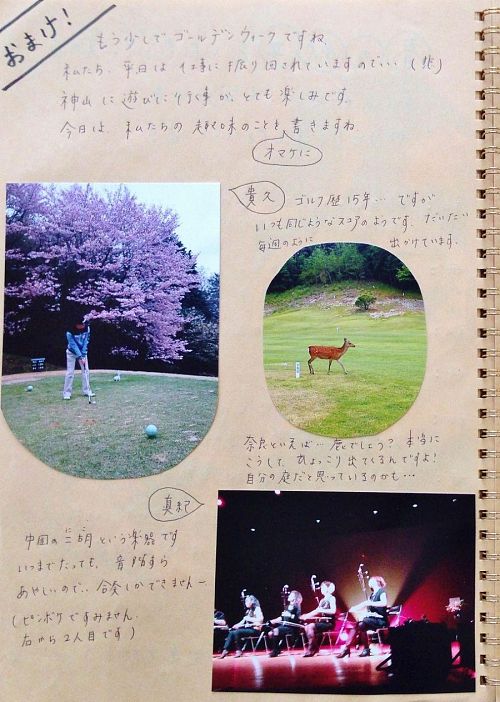 おまけ!
もう少しでゴールデンウィークですね
私たち、平日は仕事に振り回されていますので… (悲)
神山に遊びに行く事が、とても楽しみです。
今日は、私たちの趣味のことを書きますね
オマケに
貴久
ゴルフ歴15年… ですが
いつも同じようなスコアのようです。だいたい
毎週のように 出かけています。
奈良といえば… 鹿でしょう? 本当に
こうして、ひょっこり出てくるんですよ!
自分の庭だと思っているのかも…
真紀
中国の二胡という楽器です
にこ
いつまでたっても、音階すら
あやしいので、合奏しかできませんー
(ピンボケですみません。
右から2人目です)